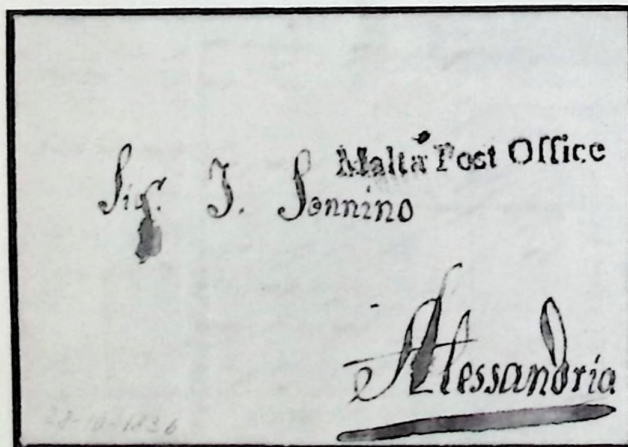 Malta Post Office
Sig. J. Sonnino
Alessandria
28-10-1836